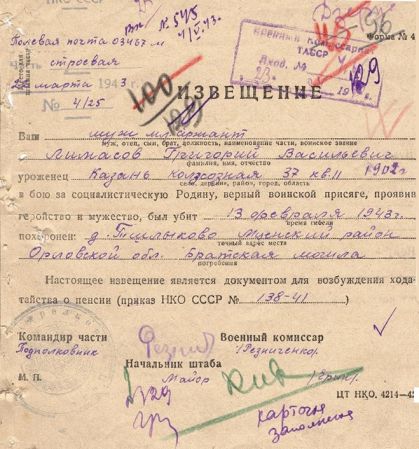 НКО СССР
Вх № 545
4/V.43.
Полевая почта 03467 м
строевая
марта 1943 г.
№ 4/25
Форма № 4
Военный Комиссариат
ТАССР
Вход. №
100
ИЗВЕЩЕНИЕ
Ваш муж мл. сержант
муж, отец, сын, брат, должность, наименование части, воинское звание
Лимасов Григорий Васильевич
фамилия, имя, отчество
уроженец Казань Колхозная 37 кв. 11 1902 г
село, деревня, район, город, область
в бою за социалистическую Родину, верный воинской присяге, проявив
геройство и мужество, был убит 13 февраля 1943 г.
время гибели
похоронен: д. Мценский район
точный адрес места
Орловской обл. Братская могила
погребения
Настоящее извещение является документом для возбуждения хода-
тайства о пенсии (приказ НКО СССР № 138-41)
Командир части Военный комиссар
Подполковник /Резниченко/
Начальник штаба
М. П. Майор
ЦТ НКО. 4214-42
329
карточка
заполнена